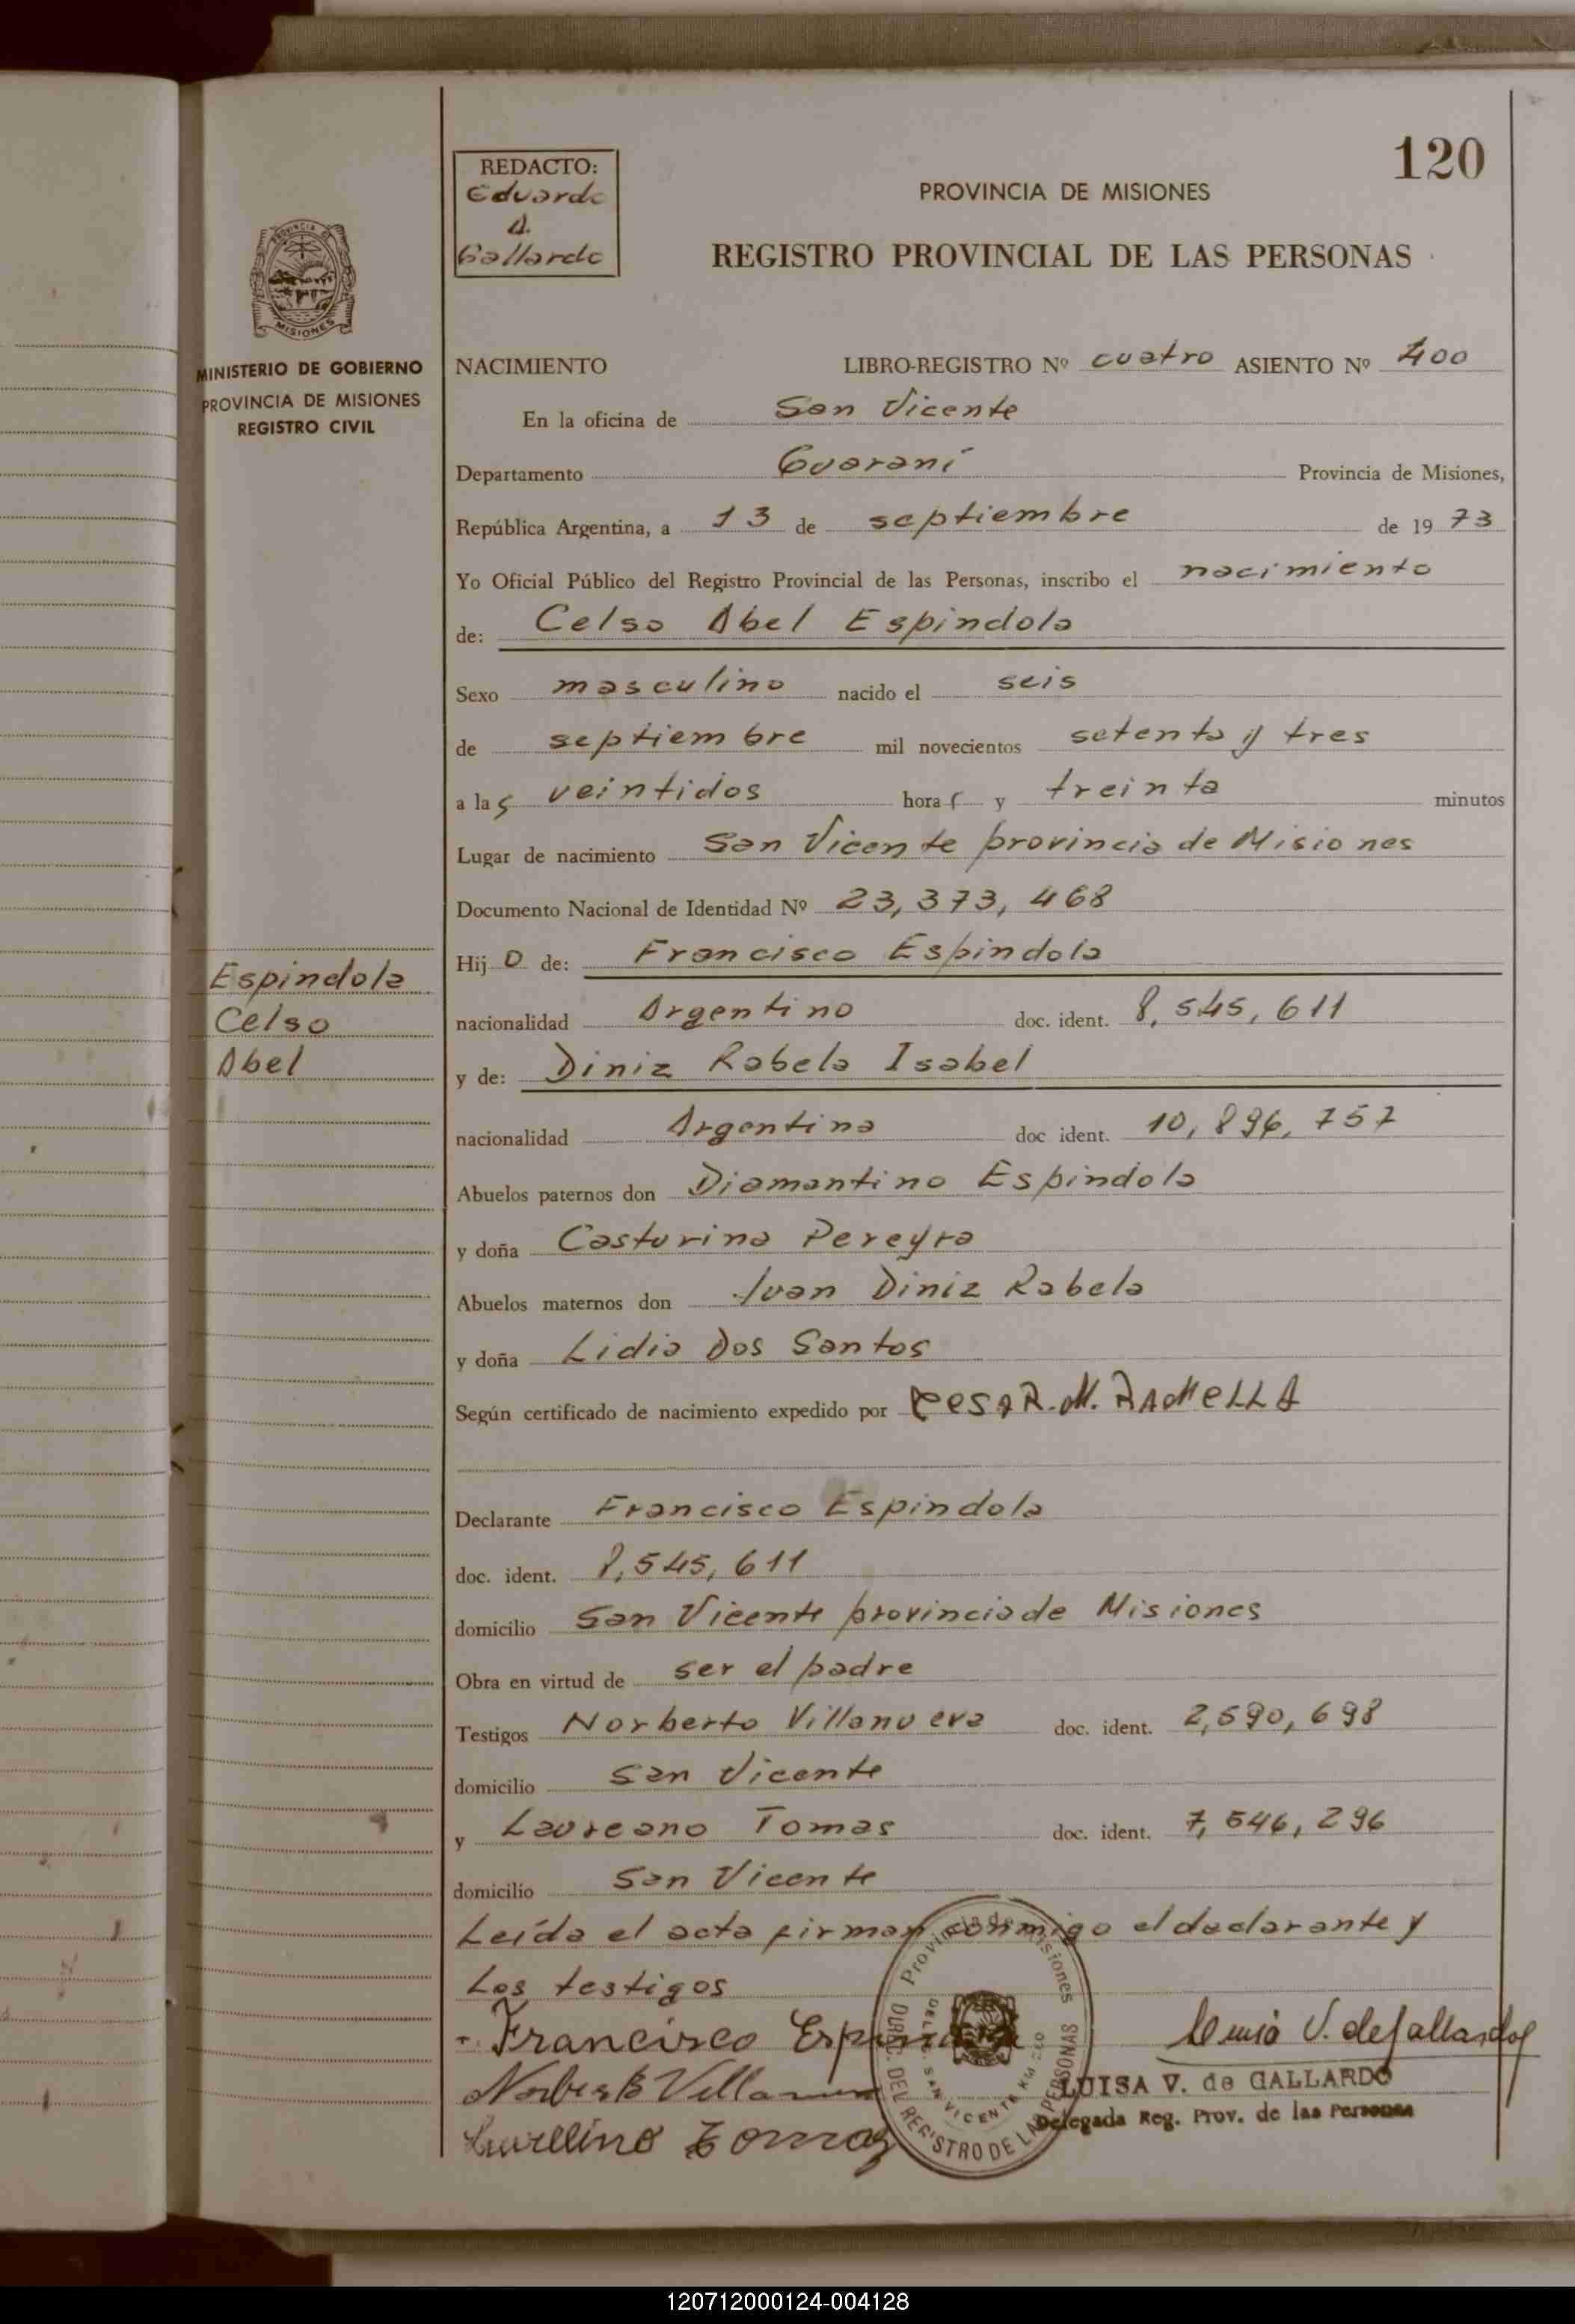 120
REDACTO:
Eduardo
A.
Gallardo
PROVINCIA DE MISIONES
REGISTRO PROVINCIAL DE LAS PERSONAS
PROVINCIA DE
MISIONES
MINISTERIO DE GOBIERNO
PROVINCIA DE MISIONES
REGISTRO CIVIL
NACIMIENTO LIBRO-REGISTRO Nº cuatro ASIENTO Nº 400
En la oficina de San Vicente
Departamento Guaraní Provincia de Misiones,
República Argentina, a 13 de septiembre de 1973
Yo Oficial Público del Registro Provincial de las Personas, inscribo el nacimiento
de: Celso Abel Espindola
Sexo masculino nacido el seis
de septiembre mil novecientos setenta y tres
a las veintidos horas y treinta minutos
Lugar de nacimiento San Vicente provincia de Misiones
Documento Nacional de Identidad Nº 23,373,468
Hijo de: Francisco Espindola
Espindola
Celso
Abel
nacionalidad Argentino doc. ident. 8,545,611
y de: Diniz Rabelo Isabel
nacionalidad Argentina doc ident. 10,896,757
Abuelos paternos don Diamantino Espindola
y doña Casturina Pereyra
Abuelos maternos don Juan Diniz Rabelo
y doña Lidia Dos Santos
Según certificado de nacimiento expedido por CESAR. M. RAMELLA
Declarante Francisco Espindola
doc. ident. 8,545,611
domicilio San Vicente provincia de Misiones
Obra en virtud de ser el padre
Testigos Norberto Villanueva doc. ident. 2,590,698
domicilio San Vicente
y Laureano Tomas doc. ident. 7,546,296
domicilio San Vicente
Leída el acta firman conmigo el declarante y
Los testigos
Francisco Espindola
Norberto Villanueva
Tomas
Provincia de Misiones
DIREC. DEL REGISTRO DE LAS PERSONAS
SAN VICENTE
Luisa V. de Gallardo
LUISA V. de GALLARDO
Delegada Reg. Prov. de las Personas
120712000124-004128